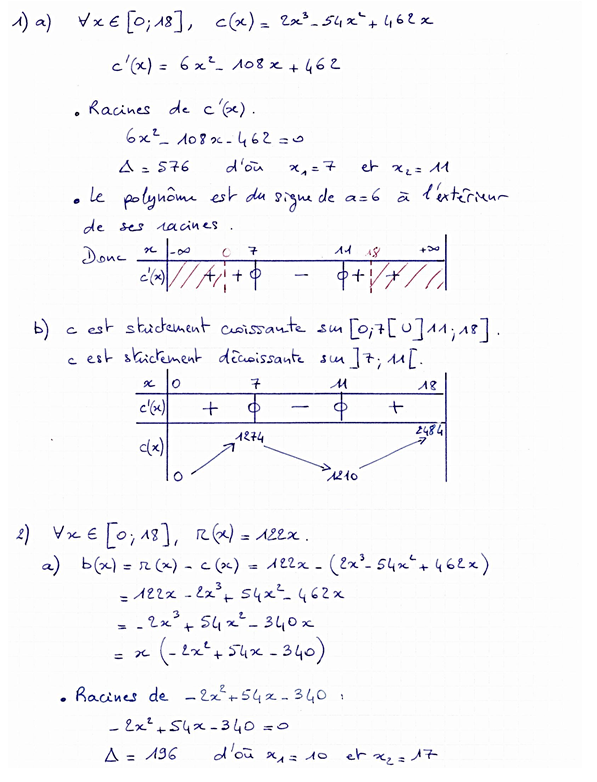 1) a) ∀x ∈ [0;18], c(x) = 2x³ - 54x² + 462x
c'(x) = 6x² - 108x + 462
• Racines de c'(x).
6x² - 108x - 462 = 0
Δ = 576 d'où x₁ = 7 et x₂ = 11
• Le polynôme est du signe de a = 6 à l'extérieur
de ses racines.
Donc x -∞ 0 7 11 18 +∞
c'(x) + + 0 - 0 + +
b) c est strictement croissante sur [0,7[ ∪ ]11;18].
c est strictement décroissante sur ]7;11[.
x 0 7 11 18
c'(x) + 0 - 0 +
c(x) 0 1274 1210 2484
2) ∀x ∈ [0;18], R(x) = 122x.
a) b(x) = R(x) - c(x) = 122x - (2x³ - 54x² + 462x)
= 122x - 2x³ + 54x² - 462x
= -2x³ + 54x² - 340x
= x (-2x² + 54x - 340)
• Racines de -2x² + 54x - 340 :
-2x² + 54x - 340 = 0
Δ = 196 d'où x₁ = 10 et x₂ = 17